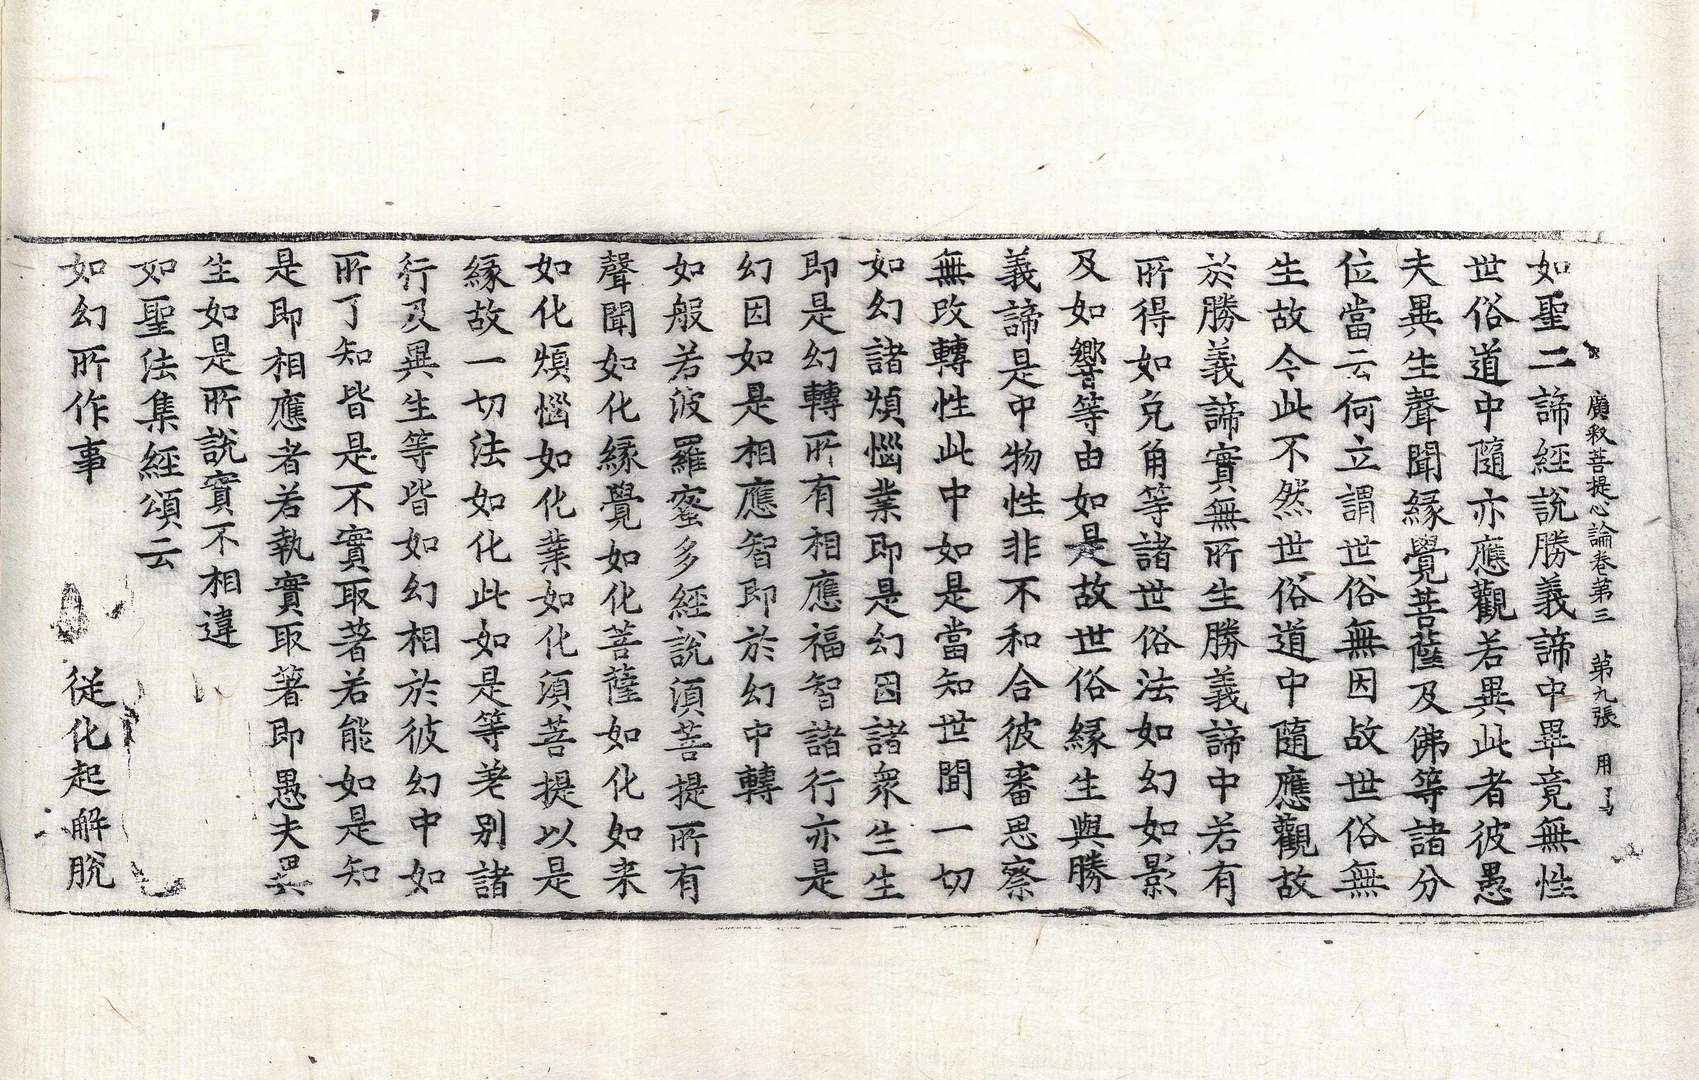 廣釈菩提心論卷第三　第九張　用
如聖二諦經說勝義諦中畢竟無性
世俗道中隨亦應觀若異此者彼愚
夫異生聲聞緣覺菩薩及佛等諸分
位當云何立謂世俗無因故世俗無
生故令此不然世俗道中隨應觀故
於勝義諦實無所生勝義諦中若有
所得如兎角等諸世俗法如幻如影
及如響等由如是故世俗緣生與勝
義諦是中物性非不和合彼審思察
無改轉性此中如是當知世間一切
如幻諸煩惱業即是幻因諸衆生生
即是幻轉所有相應福智諸行亦是
幻因如是相應智即於幻中轉
如般若波羅蜜多經說湏菩提所有
聲聞如化緣覺如化菩薩如化如来
如化煩惱如化業如化湏菩提以是
緣故一切法如化此如是等差别諸
行及異生等皆如幻相於彼幻中如
所了知皆是不實取著若能如是知
是即相應者若執實取著即愚夫異
生如是所說實不相違
如聖法集經頌云
如幻所作事　從化起解脫